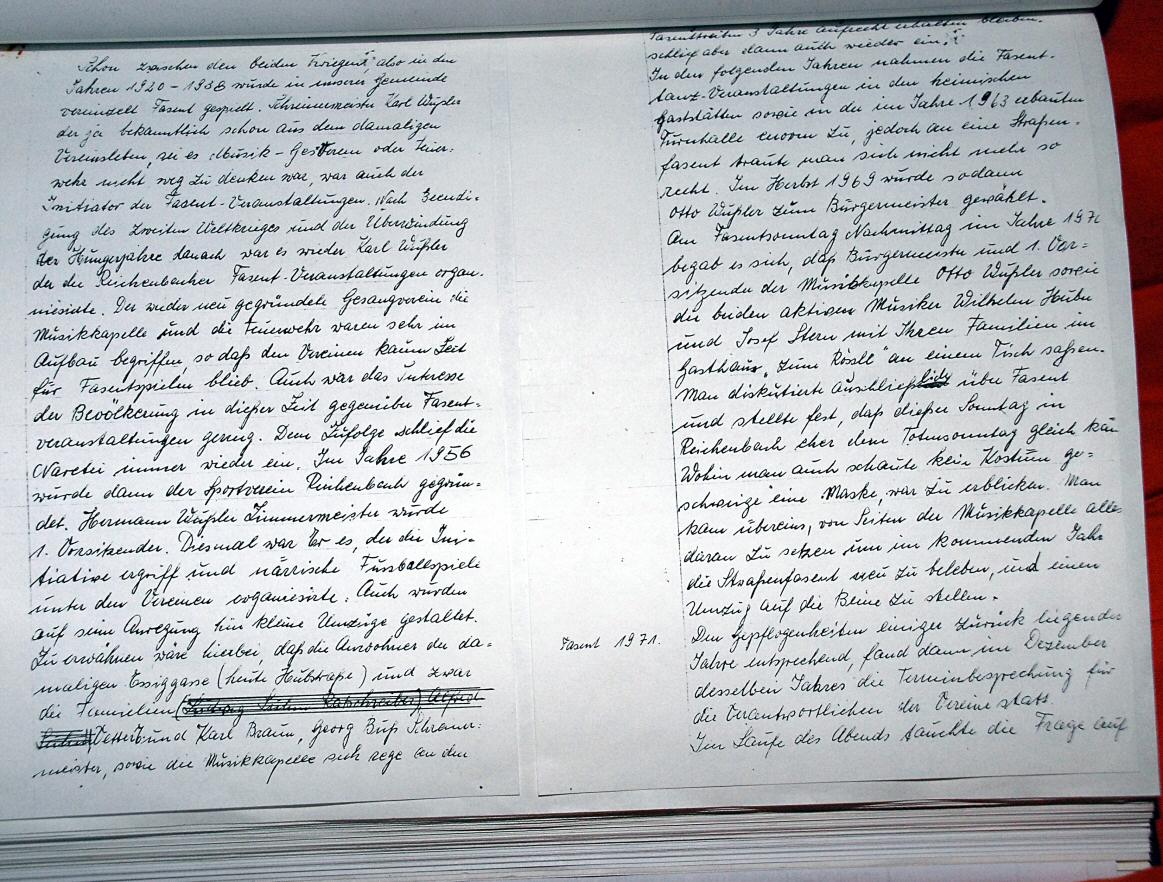 Schon zwischen den beiden Kriegen, also in den
Jahren 1920 - 1938 wurde in unserer Gemeinde
vereinzelt Fasent gespielt. Schreinermeister Karl Wußler
der ja bekanntlich schon aus dem damaligen
Vereinsleben, sei es Musik - Gesverein oder Feuer-
wehr nicht weg zu denken war, war auch der
Initiator der Fasent-Veranstaltungen. Nach Beendi-
gung des zweiten Weltkrieges und der Überwindung
der Hungerjahre danach war es wieder Karl Wußler
der die Reichenbacher Fasent-Veranstaltungen organ-
niesirte. Der wieder neu gegründete Gesangverein die
Musikkapelle und die Feuerwehr waren sehr im
Aufbau begriffen, so daß den Vereinen kaum Zeit
für Fasentspielen blieb. Auch war das Interesse
der Bevölkerung in dießer Zeit gegenüber Fasent-
veranstaltungen gering. Dem Zufolge schlief die
Narretei immer wieder ein. Im Jahre 1956
wurde dann der Sportverein Reichenbach gegrün-
det. Hermann Wußler Zimmermeister wurde
1. Vorsitzender. Diesmal war Er es, der die Ini-
tiative ergriff und närrische Fussballspiele
unter den Vereinen organiesirte. Auch wurden
auf sein Anregung hin kleine Umzüge gestaltet.
Zu erwähnen wäre hierbei daß die Anwohner der da-
maligen Essiggasse (heute Hubstraße) und zwar
die Familien
Vetter und Karl Braun, Georg Buß Schreiner-
meister, sowie die Musikkapelle sich rege an den
Fasentreiben 3 Jahre aufrecht erhalten bleiben.
schlief aber dann auch wieder ein.
In den folgenden Jahren nahmen die Fasent-
tanz-Veranstaltungen in den heimischen
Gaststätten sowie in der im Jahre 1963 erbauten
Turnhalle enorm zu, jedoch an eine Straßen-
fasent traute man sich nicht mehr so
recht. Im Herbst 1969 wurde sodann
Otto Wußler zum Bürgermeister gewählt.
Am Fasentsonntag Nachmittag im Jahre 197
begab es sich, daß Bürgermeister und 1. Vor-
sitzende der Musikkapelle Otto Wußler sowie
die beiden aktiven Musiker Wilhelm Huber
und Josef Stern mit Ihren Familien im
Gasthaus "Zum Rössle" an einem Tisch saßen.
Man diskutierte auschließlich über Fasent
und stellte fest, daß dießer Sonntag in
Reichenbach eher dem Totensonntag gleich käm
Wohin man auch schaute kein Kostüm ge-
schweige eine Maske, war zu erblicken. Man
kam überein, von Seiten der Musikkapelle alles
daran zu setzen um im kommenden Jahr
die Straßenfasent neu zu beleben, und einen
Umzug auf die Beine zu stellen.
Fasent 1971.
Den Gepflogenheiten einiger zurück liegender
Jahre entsprechend, fand dann im Dezember
desselben Jahres die Terminbesprechung für
die Verantwortlichen der Vereine statt.
Im Laufe des Abends tauchte die Frage auf